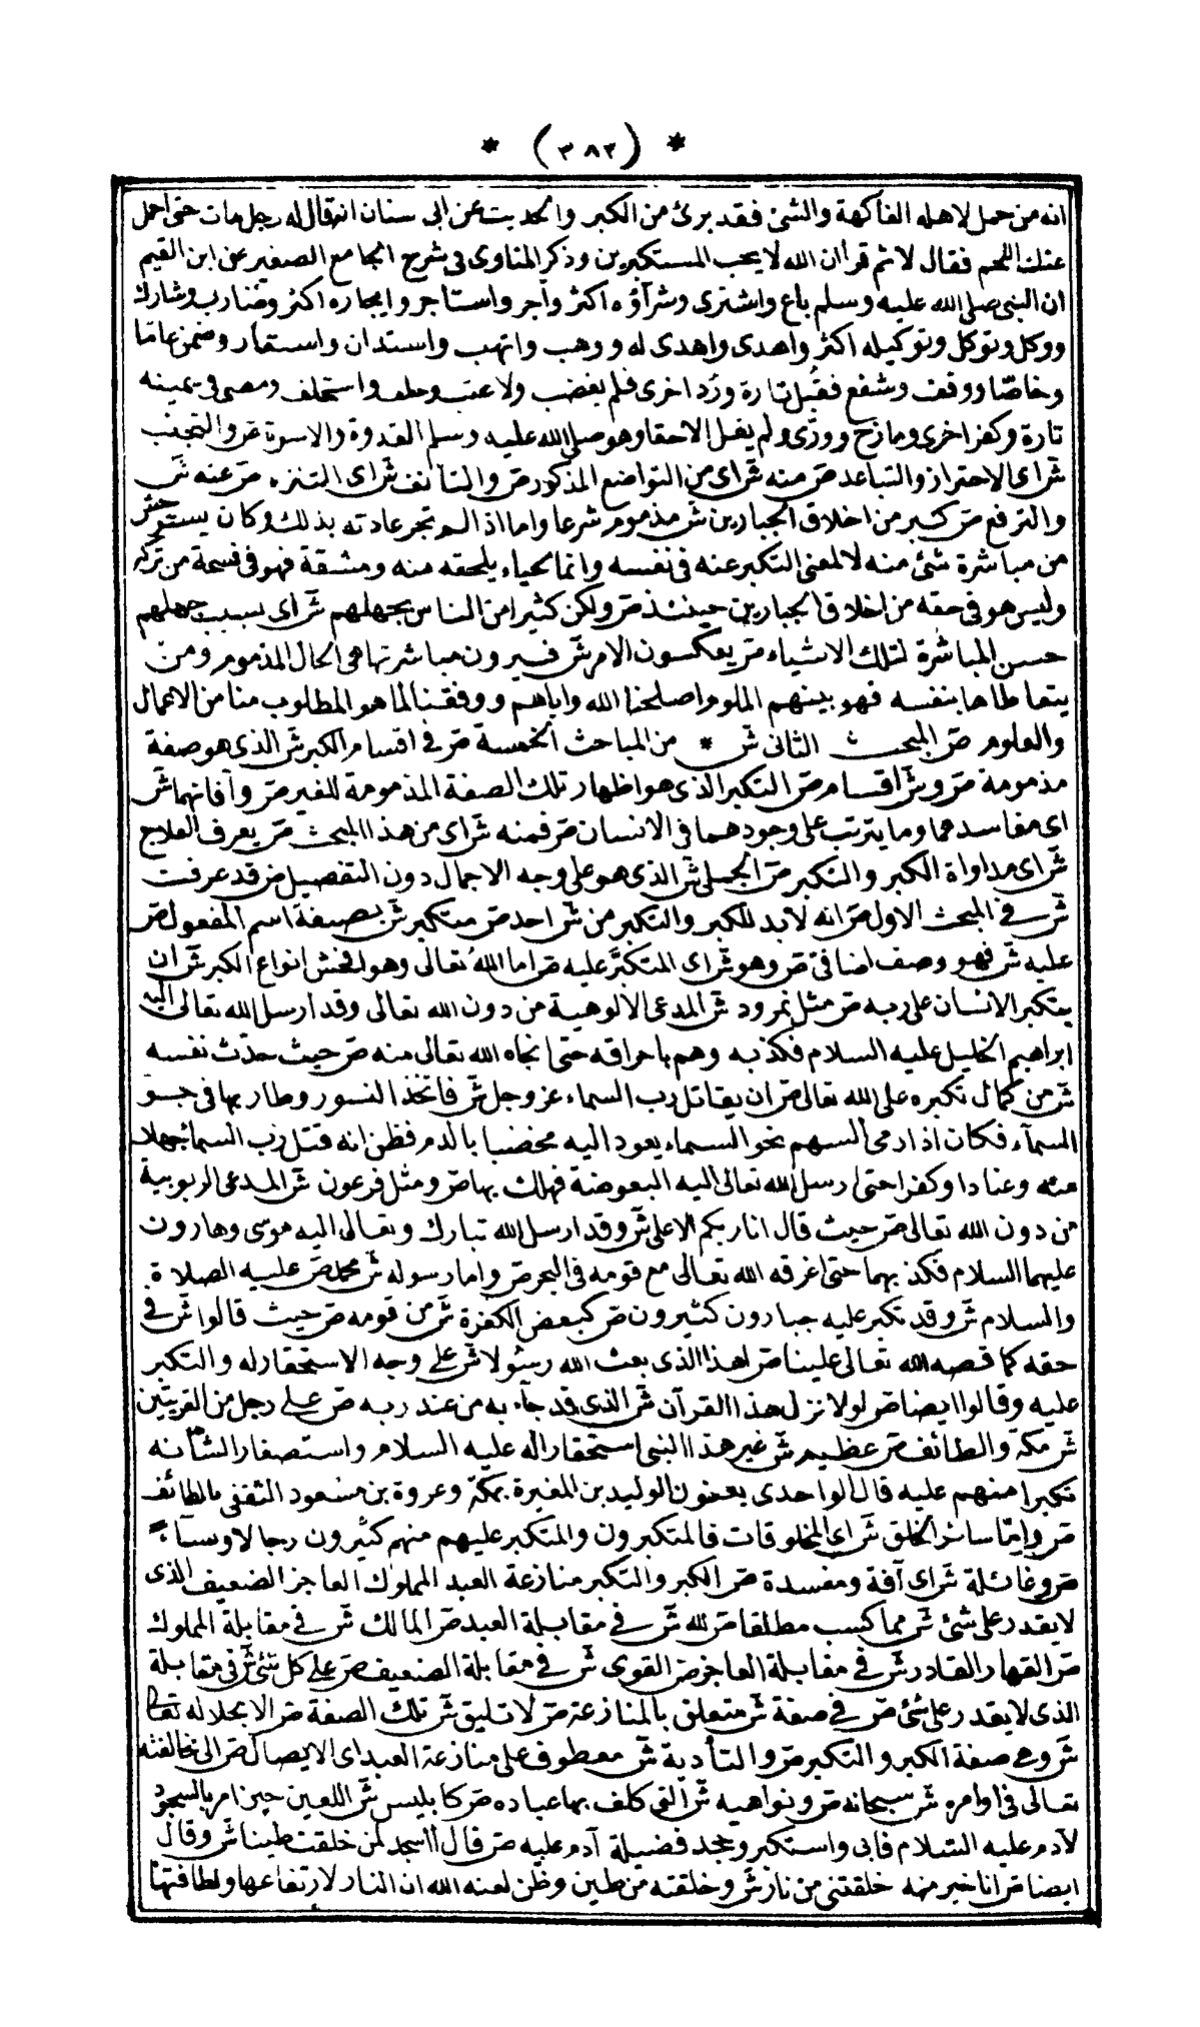 * (٣٨٢) *
انه من حمل لاهله الفاكهة والشئ فقد برئ من الكبر والحديث عن ابى سنان انه قال له رجل مات حتى احمل
عنك اللحم فقال لا ثم قرا ان الله لا يحب المستكبرين وذكر المناوى فى شرح الجامع الصغير عن ابن القيم
ان النبى صلى الله عليه وسلم باع واشترى وشرآؤه اكثر وآجر واستاجر وايجاره اكثر وضارب وشارك
ووكل وتوكل وتوكيله اكثر واهدى واهدى له ووهب واتهب واستدان واستعار وضمن عاما
وخاصا ووقف وشفع فقبل تارة ورد اخرى فلم يغضب ولا عتب وحلف واستحلف ومضى فى يمينه
تارة وكفر اخرى ومازح وورى ولم يقل الا حقا وهو صلى الله عليه وسلم القدوة والاسوة ص والتجنب
ش اى الاحتراز والتباعد ص منه ش اى من التواضع المذكور ص والتأنف ش اى التنزه ص عنه ش
والترفع ص كبر من اخلاق الجبارين ش مذموم شرعا واما اذا لم تجر عادته بذلك وكان يستوحش
من مباشرة شئ منه لا لمعنى التكبر عنه فى نفسه وانما لحياء يلحقه منه ومشقة فهو فى فسحة من تركه
وليس هو فى حقه من اخلاق الجبارين حينئذ ص ولكن كثيرا من الناس بجهلهم ش اى بسبب جهلهم
حسن المباشرة لتلك الاشياء ص يعكسون الامر ش فيرون مباشرتها هى الحال المذموم ومن
يتعاطاها بنفسه فهو بينهم الملوم اصلحنا الله واياهم ووفقنا لما هو المطلوب منا من الاعمال
والعلوم ص المبحث الثانى ش * من المباحث الخمسة ص فى اقسام الكبر ش الذى هو صفة
مذمومة ص و ش اقسام ص التكبر الذى هو اظهار تلك الصفة المذمومة للغير ص وآفاتهما ش
اى مفاسدهما وما يترتب على وجودهما فى الانسان ص فمنه ش اى من هذا المبحث ص يعرف العلاج
ش اى مداواة الكبر والتكبر ص الجملى ش الذى هو على وجه الاجمال دون التفصيل ص قد عرفت
ش فى المبحث الاول ص انه لا بد للكبر والتكبر من ش احد ص متكبر ش بصيغة اسم المفعول ص
عليه ش فهو وصف اضافى ص وهو ش اى المتكبر عليه ص اما الله تعالى وهو افحش انواع الكبر ش ان
يتكبر الانسان على ربه ص مثل نمرود ش المدعى الالوهية من دون الله تعالى وقد ارسل الله تعالى اليه
ابراهيم الخليل عليه السلام فكذبه وهم باحراقه حتى انجاه الله تعالى منه ص حيث حدث نفسه
ش من كمال تكبره على الله تعالى ص ان يقاتل رب السماء عز وجل ش فاتخذ النسور وطار بها فى جو
السمآء فكان اذا رمى السهم نحو السماء يعود اليه مخضبا بالدم فظن انه قتل رب السما جهلا
منه وعنادا وكفرا حتى ارسل الله تعالى اليه البعوضة فهلك بها ص ومثل فرعون ش المدعى الربوبية
من دون الله تعالى ص حيث قال انا ربكم الاعلى ش وقد ارسل الله تبارك وتعالى اليه موسى وهارون
عليهما السلام فكذبهما حتى اغرقه الله تعالى مع قومه فى البحر ص واما رسوله ش محمد ص عليه الصلاة
والسلام ش وقد تكبر عليه جبارون كثيرون ص كبعض الكفرة ش من قومه ص حيث قالوا ش فى
حقه كما قصه الله تعالى علينا ص اهذا الذى بعث الله رسولا ش على وجه الاستحقار له والتكبر
عليه وقالوا ايضا ص لولا نزل هذا القرآن ش الذى قد جآء به من عند ربه ص على رجل من القريتين
ش مكة والطائف ص عظيم ش غير هذا النبى استحقارا له عليه السلام واستصغارا لشأنه
تكبرا منهم عليه قال الواحدى يعنون الوليد بن المغيرة بمكة وعروة بن مسعود الثقفى بالطائف
ص واما سائر الخلق ش اى المخلوقات فالمتكبرون والمتكبر عليهم منهم كثيرون رجالا ونسآء
ص وغائلة ش اى آفة ومفسدة ص الكبر والتكبر منازعة العبد المملوك العاجز الضعيف الذى
لا يقدر على شئ ش مما كسب مطلقا ص لله ش فى مقابلة العبد ص المالك ش فى مقابلة المملوك
ص القهار القادر ش فى مقابلة العاجز ص القوى ش فى مقابلة الضعيف ص على كل شئ ش فى مقابلة
الذى لا يقدر على شئ ص فى صفة ش متعلق بالمنازعة ص لا تليق ش تلك الصفة ص الا بجلاله تعالى
ش وهى صفة الكبر والتكبر ص والتأدية ش معطوف على منازعة العبد اى الايصال ص الى مخالفته
تعالى فى اوامره ش سبحانه ص ونواهيه ش التى كلف بها عباده ص كابليس ش اللعين حين امر بالسجود
لآدم عليه السلام فابى واستكبر وجحد فضيلة آدم عليه ص قال أاسجد لمن خلقت طينا ش وقال
ايضا ص انا خير منه خلقتنى من نار ش وخلقته من طين وظن لعنه الله ان النار لارتفاعها ولطافتها